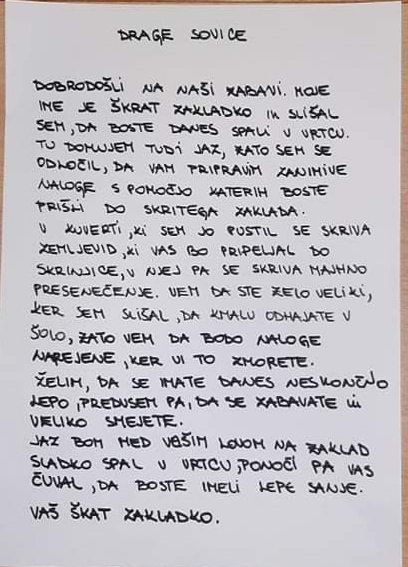 DRAGE SOVICE
DOBRODOŠLI NA NAŠI ZABAVI. MOJE
IME JE ŠKRAT ZAKLADKO IN SLIŠAL
SEM, DA BOSTE DANES SPALI V VRTCU.
TU DOMUJEM TUDI JAZ, ZATO SEM SE
ODLOČIL, DA VAM PRIPRAVIM ZANIMIVE
NALOGE S POMOČJO KATERIH BOSTE
PRIŠLI DO SKRITEGA ZAKLADA.
V KUVERTI, KI SEM JO PUSTIL SE SKRIVA
ZEMLJEVID, KI VAS BO PRIPELJAL DO
SKRINJICE, V NJEJ PA SE SKRIVA MAJHNO
PRESENEČENJE. VEM DA STE ŽELO VELIKI,
KER SEM SLIŠAL, DA KMALU ODHAJATE V
ŠOLO, ZATO VEM DA BODO NALOGE
NAREJENE, KER VI TO ZMORETE.
ŽELIM, DA SE IMATE DANES NESKONČNO
LEPO, PREDUSEM PA, DA SE ZABAVATE IN
VELIKO SMEJETE.
JAZ BOM MED VAŠIM LOVOM NA ZAKLAD
SLADKO SPAL V VRTCU, PONOČI PA VAS
ČUVAL, DA BOSTE IMELI LEPE SANJE.
VAŠ ŠKAT ZAKLADKO.